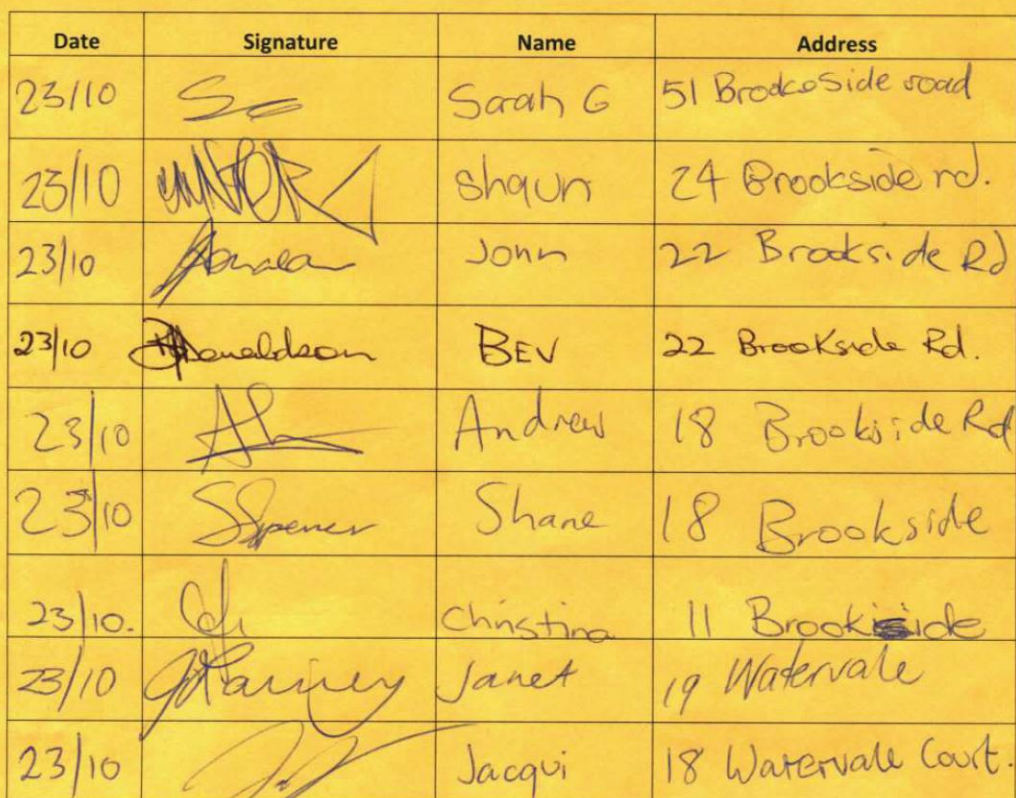 Date Signature Name Address
23/10 Sarah G 51 Brookside road
23/10 Shaun 24 Brookside rd.
23/10 John 22 Brookside Rd
23/10 Donaldson BEV 22 Brookside Rd.
23/10 Andrew 18 Brookside Rd
23/10 SSpencer Shane 18 Brookside
23/10. Christina 11 Brookside
23/10 Janet 19 Watervale
23/10 Jacqui 18 Watervale Court.